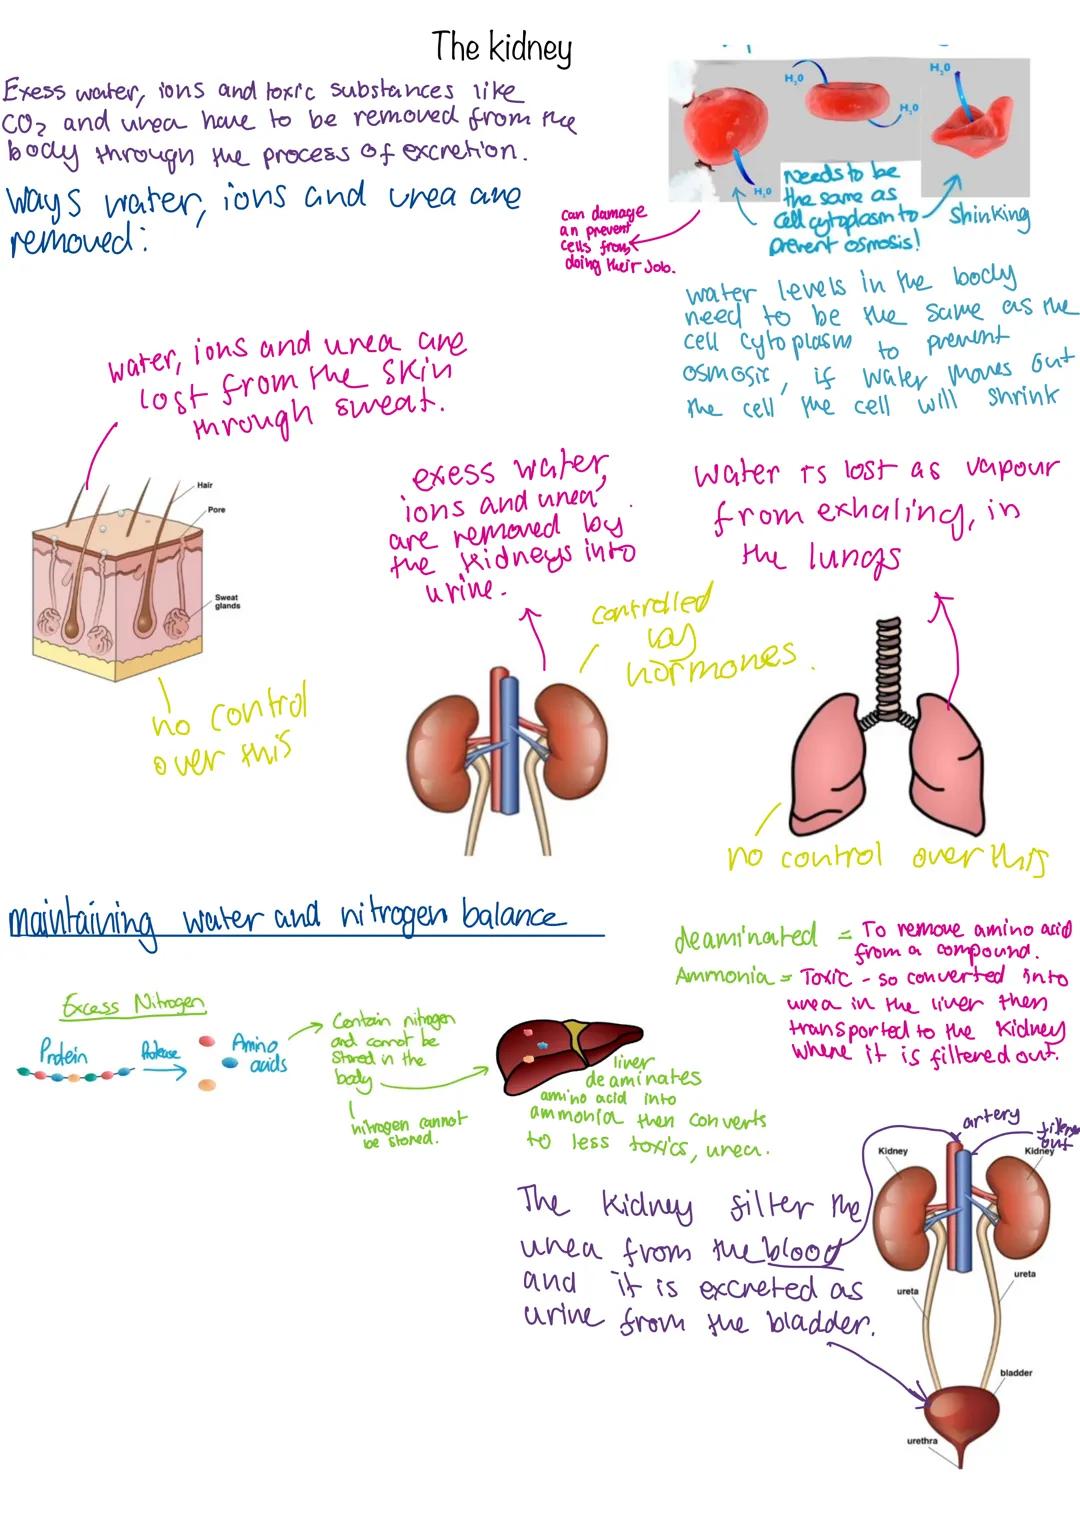 The kidney
Exess water, ions and toxic substances like
CO2 and urea have to be removed from the
body through the process of excretion.
Ways water, ions and urea are
removed:
H₂O
H₂O
H₂O
H₂O
Needs to be
the same as
cell cytoplasm to
prevent osmosis!
Shinking
can damage
an prevent
cells from
doing their job.
water levels in the body
need to be the same as the
cell cytoplasm to prevent
osmosis, if water moves out
the cell the cell will shrink
water, ions and urea are
lost from the skin
through sweat.
Hair
Pore
Sweat
glands
no control
over this
exess water,
ions and urea
are removed by
the kidneys into
urine.
controlled
by
hormones.
water is lost as vapour
from exhaling, in
the lungs
no control over this
maintaining water and nitrogen balance
deaminated = To remove amino acid
from a compound.
Ammonia = Toxic - so converted into
urea in the liver then
transported to the kidney
where it is filtered out.
Excess Nitrogen
Protein
Protease
Amino
acids
Contain nitrogen
and cannot be
stored in the
body
nitrogen cannot
be stored.
liver
deaminates
amino acid into
ammonia then converts
to less toxics, urea.
The kidney filter the
urea from the blood
and it is excreted as
urine from the bladder.
artery
out
Kidney
Kidney
ureta
ureta
bladder
urethra